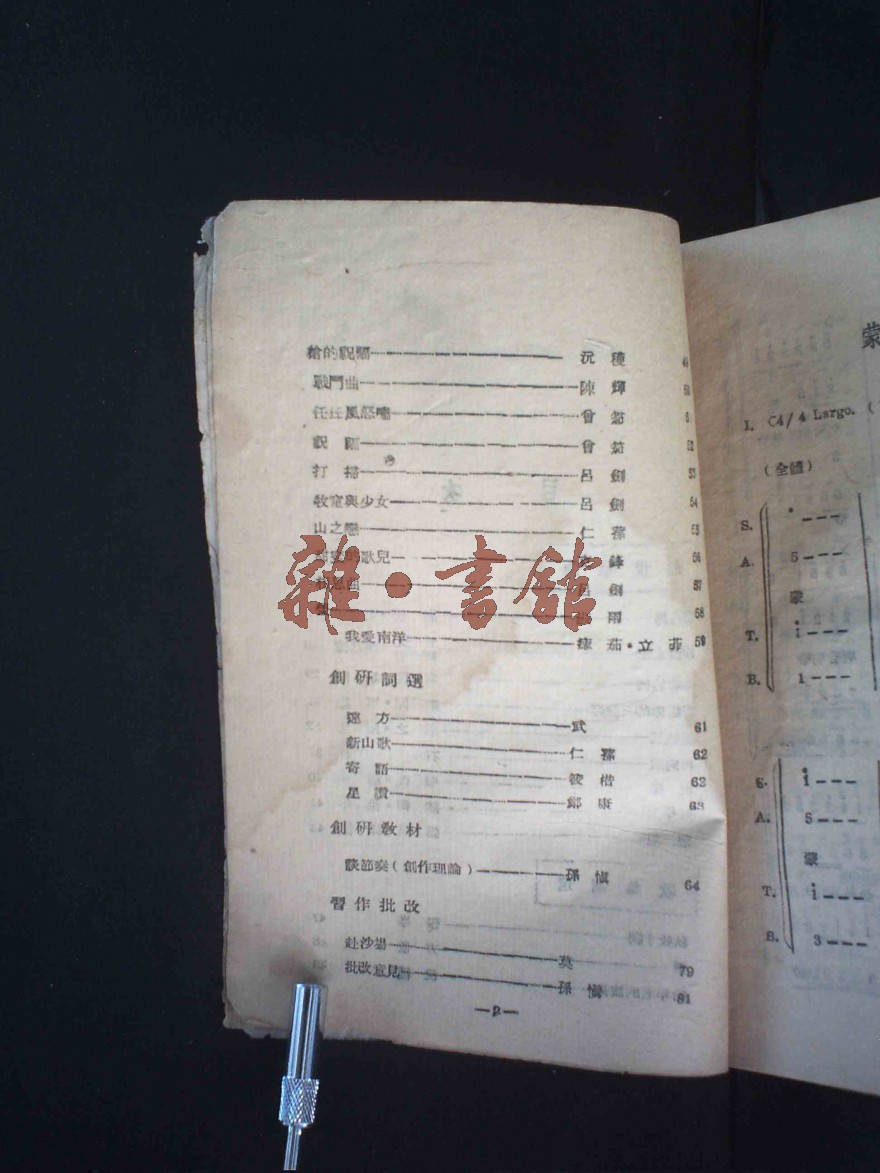 槍的祝福 沉稷
戰鬥曲 陳輝
任狂風怒嘯 曾
祝 曾 52
打掃 呂劍 53
牧童與少女 呂劍 54
山之戀 仁 55
的歌兒 鋒 56
曲 劍 57
雨 58
我愛南洋 茄·立菲 59
創研詞選
遠方 武 61
新山歌 仁 62
寄語 筱楷 62
星讚 鄭康 63
創研教材
談節奏(創作理論) 孫慎 64
習作批改
赴沙場 莫 79
批改意見 孫慎 81
—2—
雜·書館
蒙
1. C4/4 Largo. (
(全體)
S. i---
A. 5---
蒙
T. i---
B. 1---
S. i---
A. 5---
蒙
T. i---
B. 3---